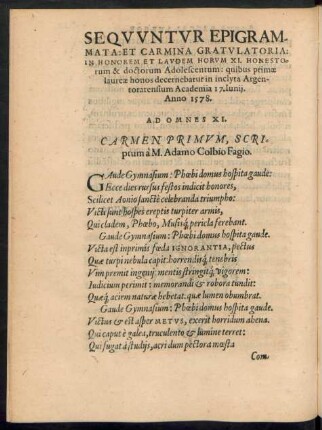 SEQVVNTVR EPIGRAM-
MATA: ET CARMINA GRATVLATORIA:
IN HONOREM ET LAVDEM HORVM XI. HONESTO-
rum & doctorum Adolescentum: quibus primæ
laureæ honos decernebatur in inclyta Argen-
toratensium Academia 17. Iunij.
Anno 1578.
AD OMNES XI.
CARMEN PRIMVM, SCRI-
ptum à M. Adamo Colbio Fagio.
GAude Gymnasium: Phœbi domus hospita gaude:
Ecce dies rursus festos indicit honores,
Scilicet Aonio sanctè celebranda triumpho:
Victi sunt hostes ereptis turpiter armis,
Qui cladem, Phœbo, Musisq́; pericla ferebant.
Gaude Gymnasium: Phœbi domus hospita gaude.
Victa est inprimis fœda IGNORANTIA, pectus
Quæ turpi nebula capit horrendisq́; tenebris
Vim premit ingenij: mentis stringitq́; vigorem:
Iudicium perimit: memorandi & robora tundit:
Quæq́; aciem naturæ hebetat: quæ lumen obumbrat.
Gaude Gymnasium: Phœbi domus hospita gaude.
Victus & est asper METVS, exerit horridum ahena.
Qui caput è galea, truculento & lumine terret:
Qui fugat á studijs, acri dum pectora mœsta
Com-